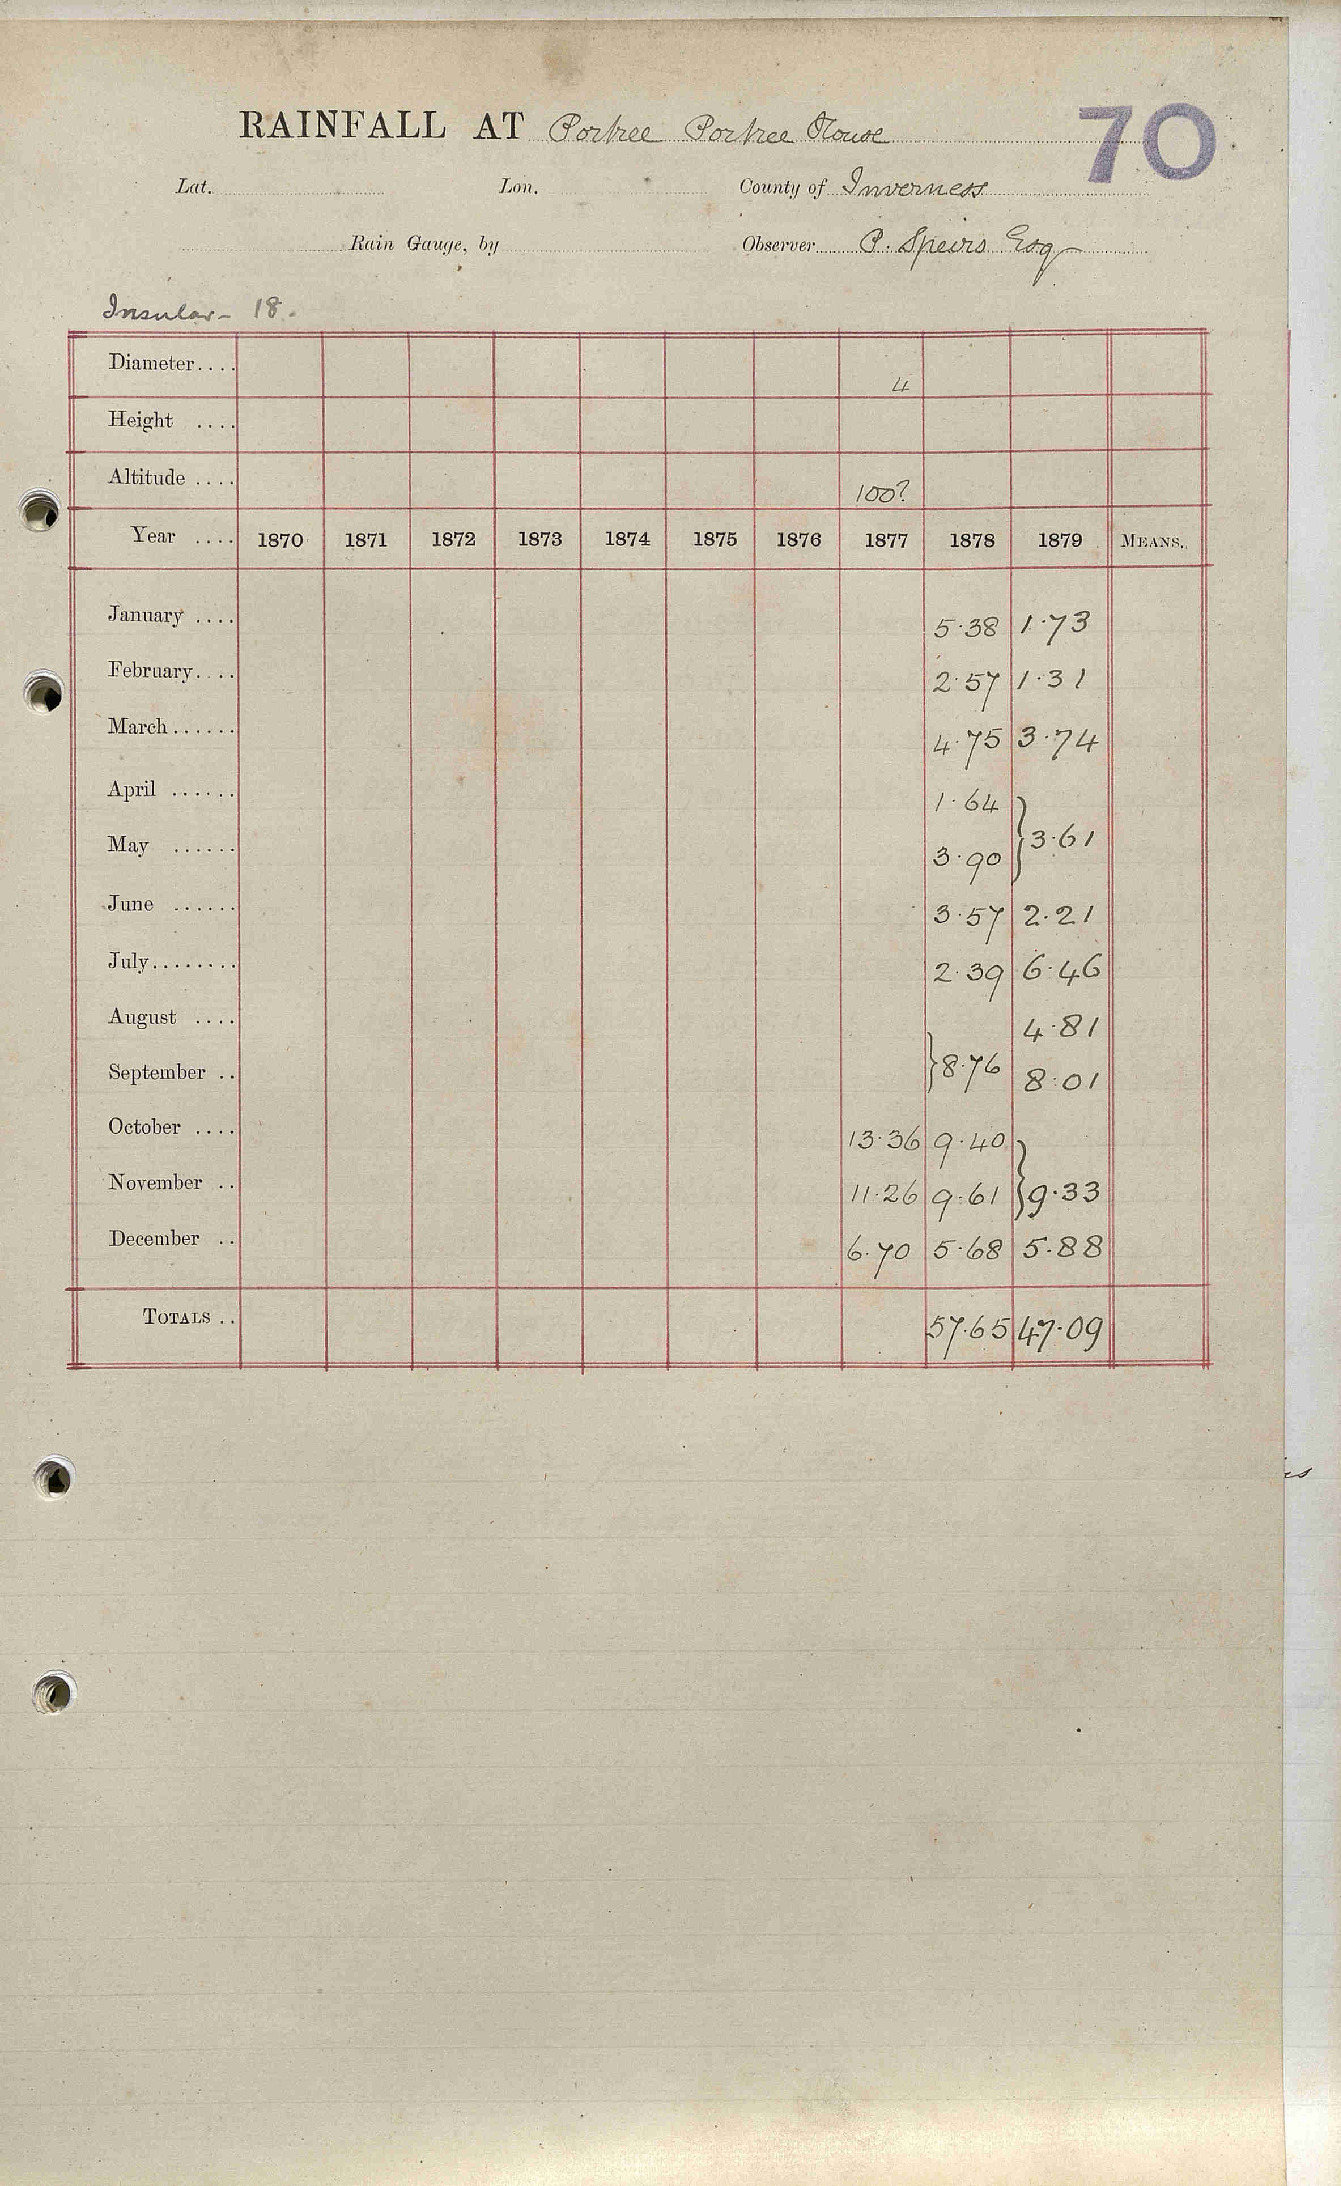 70
RAINFALL AT Portree Portree House
Lat. Lon. County of Inverness
Rain Gauge, by Observer P. Speirs Esq
Insular - 18.
Diameter.... 4
Height ....
Altitude .... 100?
Year .... 1870 1871 1872 1873 1874 1875 1876 1877 1878 1879 MEANS.
January .... 5.38 1.73
February.... 2.57 1.31
March...... 4.75 3.74
April ...... 1.64
May ...... 3.90 } 3.61
June ...... 3.57 2.21
July........ 2.39 6.46
August .... 4.81
September .. } 8.76 8.01
October .... 13.36 9.40
November .. 11.26 9.61 } 9.33
December .. 6.70 5.68 5.88
TOTALS .. 57.65 47.09